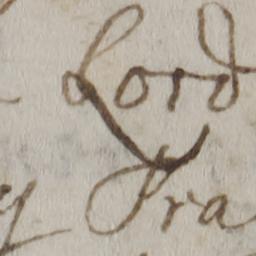 Lord
y Fra